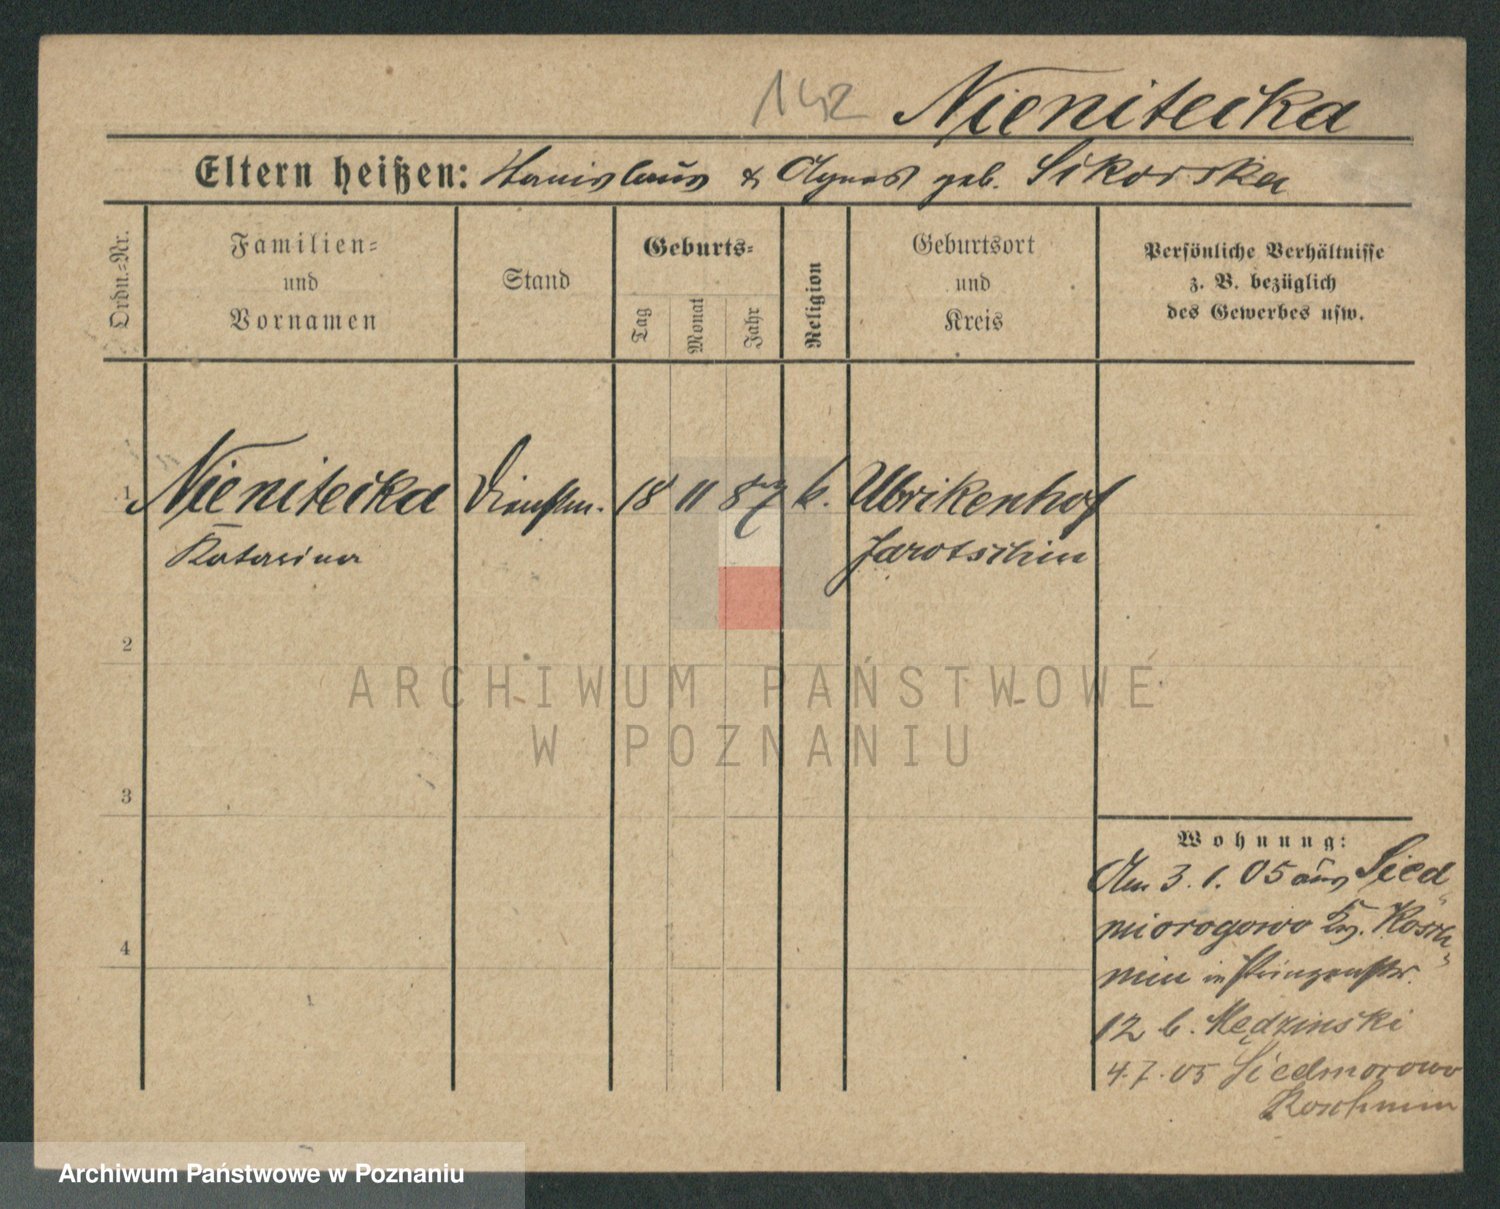 142 Nienitecka
Eltern heißen: Stanislaus & Agnes geb. Sikorska
Ordn.-Nr.
Familien-
und
Vornamen
Stand
Geburts-
Tag
Monat
Jahr
Religion
Geburtsort
und
Kreis
Persönliche Verhältnisse
z. B. bezüglich
des Gewerbes usw.
1 Nienitecka Dienstm. 18 11 87 k. Ulrikenhof
Katarina Jarotschin
2
ARCHIWUM PAŃSTWOWE
W POZNANIU
3
Wohnung:
Am 3. 1. 05 aus Sied
miorogowo Kr. Kosch
min in
4
12 b. Mędzinski
4.7.05 Siedmorowo
Koschmin
Archiwum Państwowe w Poznaniu